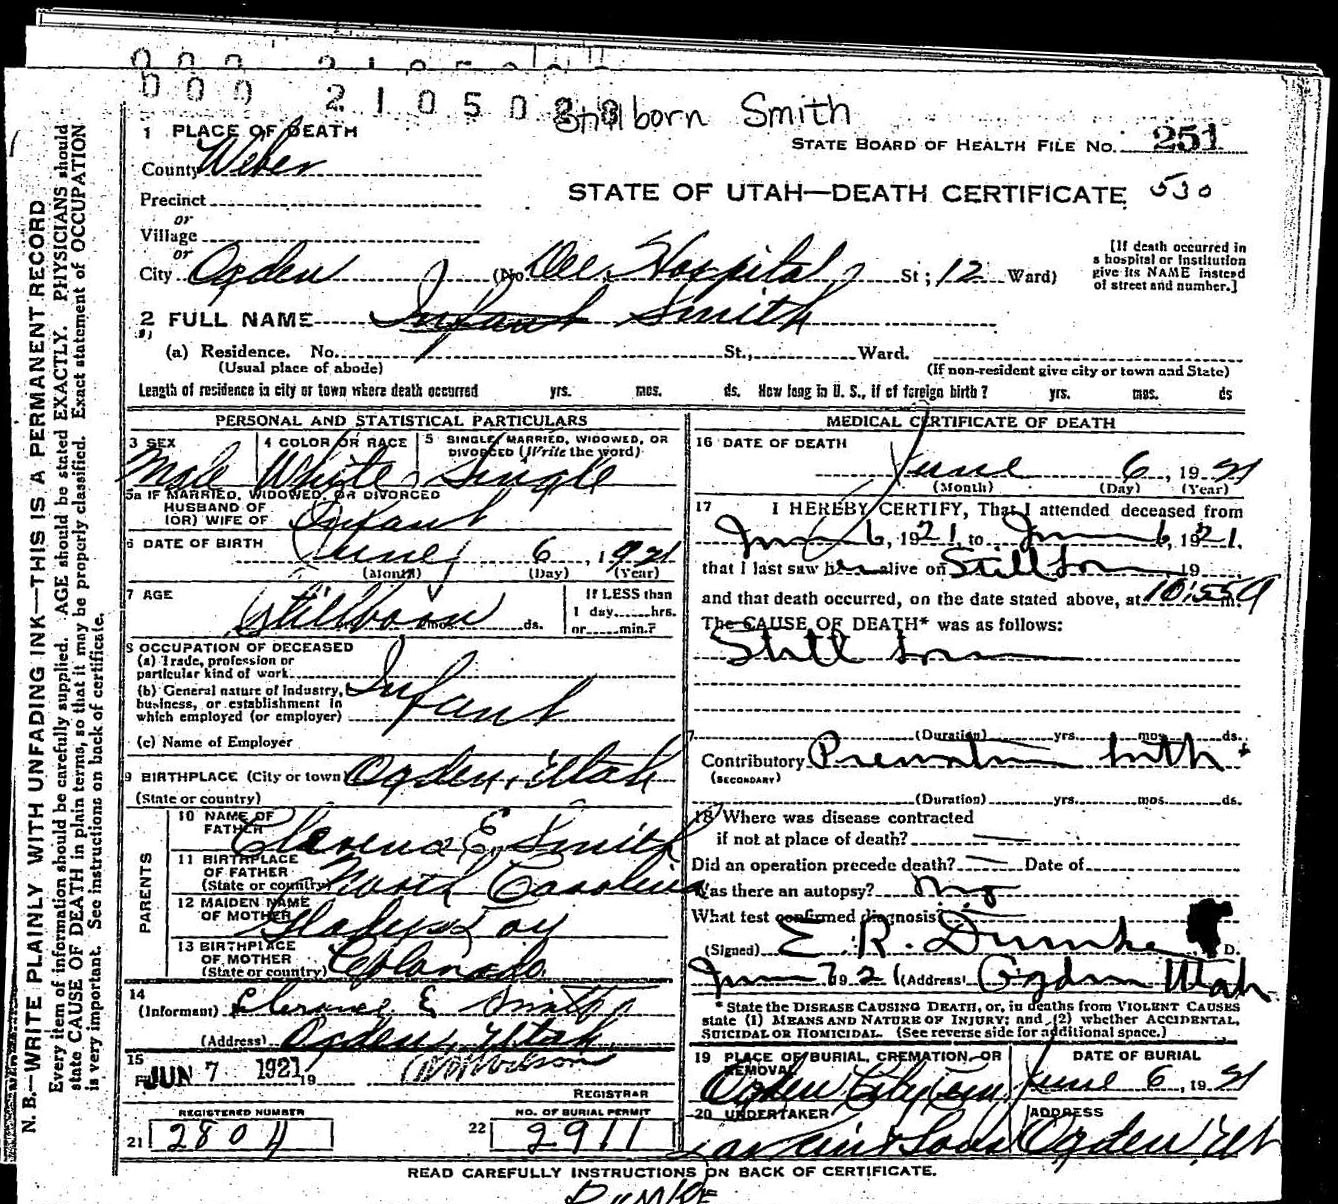 000 2105028
Stillborn Smith
1 PLACE OF DEATH
STATE BOARD OF HEALTH FILE No. 251
County Weber
STATE OF UTAH—DEATH CERTIFICATE 530
Precinct
or
Village
or
City Ogden (No. Dee Hospital St; 12 Ward)
[If death occurred in
a hospital or institution
give its NAME instead
of street and number.]
2 FULL NAME Infant Smith
(a) Residence. No. St., Ward.
(Usual place of abode) (If non-resident give city or town and State)
Length of residence in city or town where death occurred yrs. mos. ds. How long in U. S., if of foreign birth? yrs. mos. ds
PERSONAL AND STATISTICAL PARTICULARS
3 SEX 4 COLOR OR RACE 5 SINGLE, MARRIED, WIDOWED, OR
DIVORCED (Write the word)
Male White Single
5a IF MARRIED, WIDOWED, OR DIVORCED
HUSBAND OF
(OR) WIFE OF Infant
6 DATE OF BIRTH June 6, 1921
(Month) (Day) (Year)
7 AGE Stillborn mos. ds.
If LESS than
1 day, hrs.
or min.?
8 OCCUPATION OF DECEASED
(a) Trade, profession or
particular kind of work
(b) General nature of industry,
business, or establishment in
which employed (or employer)
Infant
(c) Name of Employer
9 BIRTHPLACE (City or town) Ogden, Utah
(State or country)
PARENTS
10 NAME OF
FATHER Clarence E. Smith
11 BIRTHPLACE
OF FATHER
(State or country) North Carolina
12 MAIDEN NAME
OF MOTHER Gladys
13 BIRTHPLACE
OF MOTHER
(State or country) Colorado
14
(Informant) Clarence E Smith
(Address) Ogden, Utah
15
JUN 7 1921 19
REGISTRAR
REGISTERED NUMBER NO. OF BURIAL PERMIT
21 280 22 2911
MEDICAL CERTIFICATE OF DEATH
16 DATE OF DEATH
June 6, 1921
(Month) (Day) (Year)
17 I HEREBY CERTIFY, That I attended deceased from
June 6, 1921, to June 6, 1921,
that I last saw h alive on Still born 19
and that death occurred, on the date stated above, at 10:55 m.
The CAUSE OF DEATH* was as follows:
Still born
(Duration) yrs. mos. ds.
Contributory Premature birth
(SECONDARY)
(Duration) yrs. mos. ds.
18 Where was disease contracted
if not at place of death?
Did an operation precede death? Date of
Was there an autopsy? no
What test confirmed diagnosis?
(Signed) E. R. Dumke D.
June 7 1921 (Address) Ogden Utah
* State the DISEASE CAUSING DEATH, or, in deaths from VIOLENT CAUSES
state (1) MEANS AND NATURE OF INJURY; and (2) whether ACCIDENTAL,
SUICIDAL OR HOMICIDAL. (See reverse side for additional space.)
19 PLACE OF BURIAL, CREMATION, OR
REMOVAL DATE OF BURIAL
Ogden City Cem June 6, 1921
20 UNDERTAKER ADDRESS
Larkin & Sons Ogden, Ut
READ CAREFULLY INSTRUCTIONS ON BACK OF CERTIFICATE.
DUMKE
N. B.—WRITE PLAINLY WITH UNFADING INK—THIS IS A PERMANENT RECORD
Every item of information should be carefully supplied. AGE should be stated EXACTLY. PHYSICIANS should
state CAUSE OF DEATH in plain terms, so that it may be properly classified. Exact statement of OCCUPATION
is very important. See instructions on back of certificate.